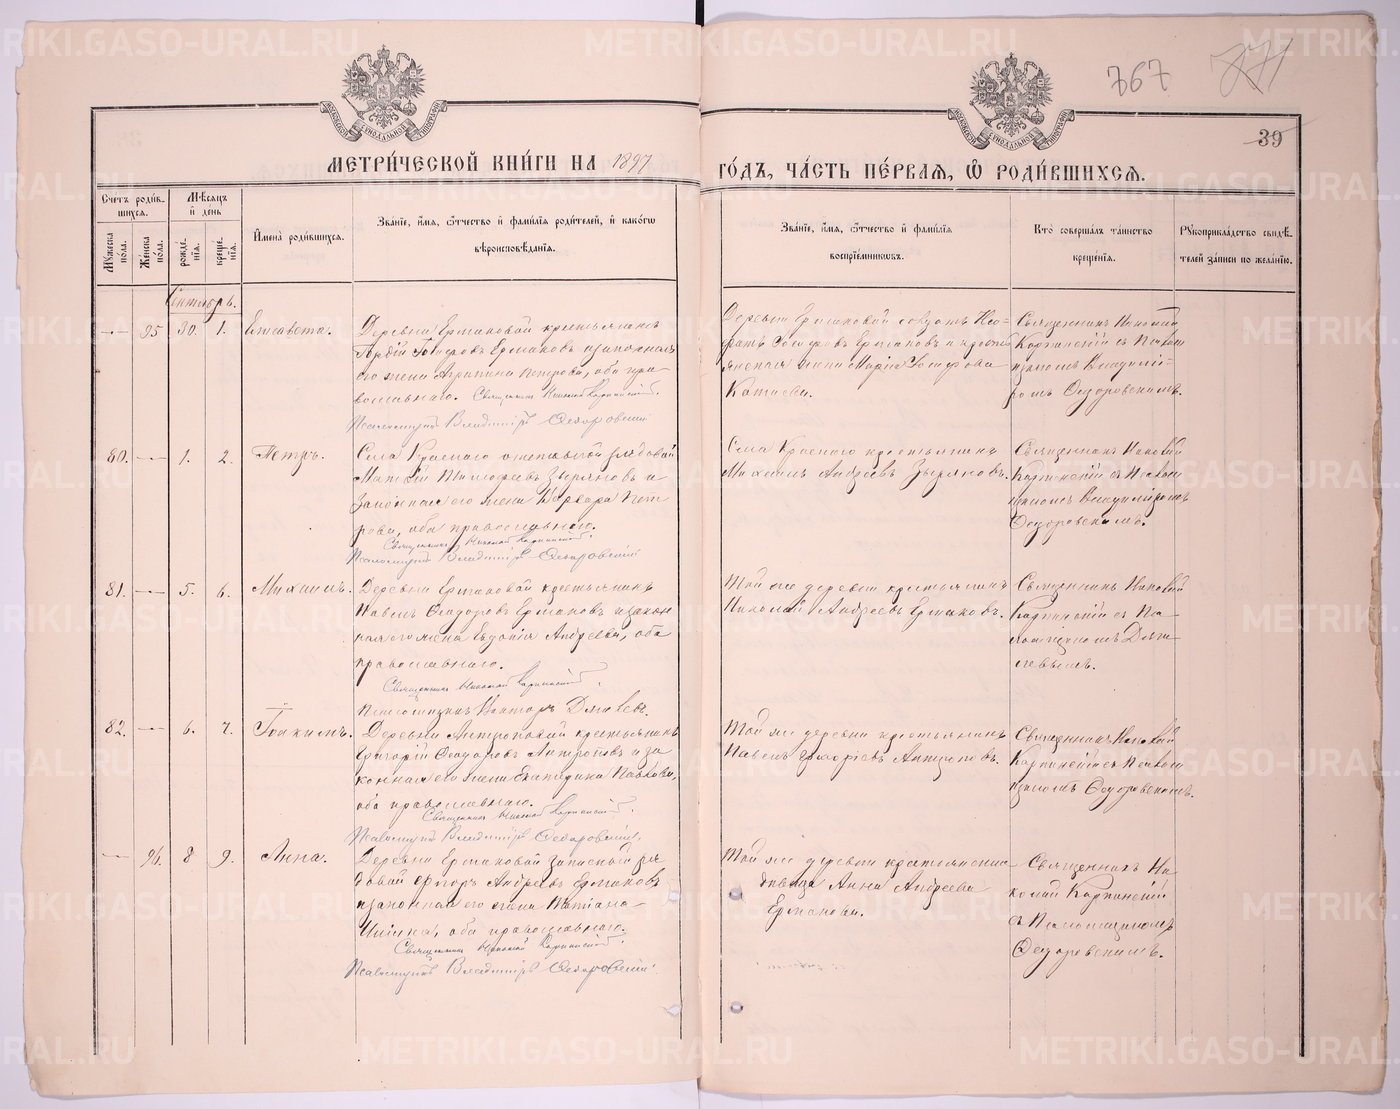 767
39
МОСКОВСКОЙ СѴНОДАЛЬНОЙ ТИПОГРАФІИ
МОСКОВСКОЙ СѴНОДАЛЬНОЙ ТИПОГРАФІИ
МЕТРИ́ЧЕСКОЙ КНИ́ГИ НА 1897 ГО́ДЪ, ЧА́СТЬ ПЕ́РВАЯ, Ѡ РОДИ́ВШИХСЯ.
Счетъ роди́вшихся.
Му́жеска по́ла.
Же́нска по́ла.
Мѣ́сяцъ и҆ день
рожде́нїя.
креще́нїя.
И҆мена̀ роди́вшихся.
Зва́нїе, и҆́мя, ѻ҆́тчество и҆ фами́лїя роди́телей, и҆ како́гѡ вѣроисповѣ́данїя.
Зва́нїе, и҆́мя, ѻ҆́тчество и҆ фами́лїя воспрїе́мникѡвъ.
Кто̀ соверша́лъ та́инство креще́нїя.
Рꙋкоприкла́дство свидѣ́телей за́писи по жела́нїю.
Сентябрь.
95 30. 1. Елисавета.
Деревни Ермаковой крестьянинъ
Гордій Іосифовъ Ермаковъ и законная
его жена Агрипина Петрова, оба пра-
вославнаго. Священникъ Николай Карпинскій.
Псаломщикъ Владиміръ Ѳедоровскій
Деревни Ермаковой
Іосифовъ Ермаковъ и кресть
янская жена Марія Іосифова
Катаева.
Священникъ Николай
Карпинскій съ Псалом
щикомъ Владимі-
ромъ Ѳедоровскимъ.
80. 1. 2. Петръ.
Села Краснаго отставной рядовой
Матвѣй Тимофеевъ Зыряновъ и
Законная его жена Варвара Пет
рова, оба православнаго.
Священникъ Николай Карпинскій.
Псаломщикъ Владиміръ Ѳедоровскій
Села Краснаго крестьянинъ
Михаилъ Андреевъ Зыряновъ.
Священникъ Николай
Карпинскій съ Псалом
щикомъ Владиміромъ
Ѳедоровскимъ.
81. 5. 6. Михаилъ.
Деревни Ермаковой крестьянинъ
Павелъ Ѳеодоровъ Ермаковъ и закон
ная его жена Евдокія Андреева, оба
православнаго.
Священникъ Николай Карпинскій.
Псаломщикъ Викторъ Дягилевъ.
Той же деревни крестьянинъ
Николай Андреевъ Ермаковъ.
Священникъ Николай
Карпинскій съ Пса-
ломщикомъ Дяги
левымъ.
82. 6. 7. Іоакимъ.
Деревни Антроповой крестьянинъ
Григорій Ѳеодоровъ Антроповъ и за
конная его жена Екатерина Павлова,
оба православнаго.
Священникъ Николай Карпинскій.
Псаломщикъ Владиміръ Ѳедоровскій.
Той же деревни крестьянинъ
Павелъ Григорьевъ Антроповъ.
Священникъ Николай
Карпинскій съ Псалом
щикомъ Ѳедоровскимъ.
96. 8 9. Анна.
Деревни Ермаковой запасной ря
довой Егоръ Андреевъ Ермаковъ
и законная его жена Татіана
оба православнаго.
Священникъ Николай Карпинскій.
Псаломщикъ Владиміръ Ѳедоровскій.
Той же деревни крестьянская
дѣвица Анна Андреева
Ермакова.
Священникъ Ни
колай Карпинскій
съ Псаломщикомъ
Ѳедоровскимъ.
METRIKI.GASO-URAL.RU